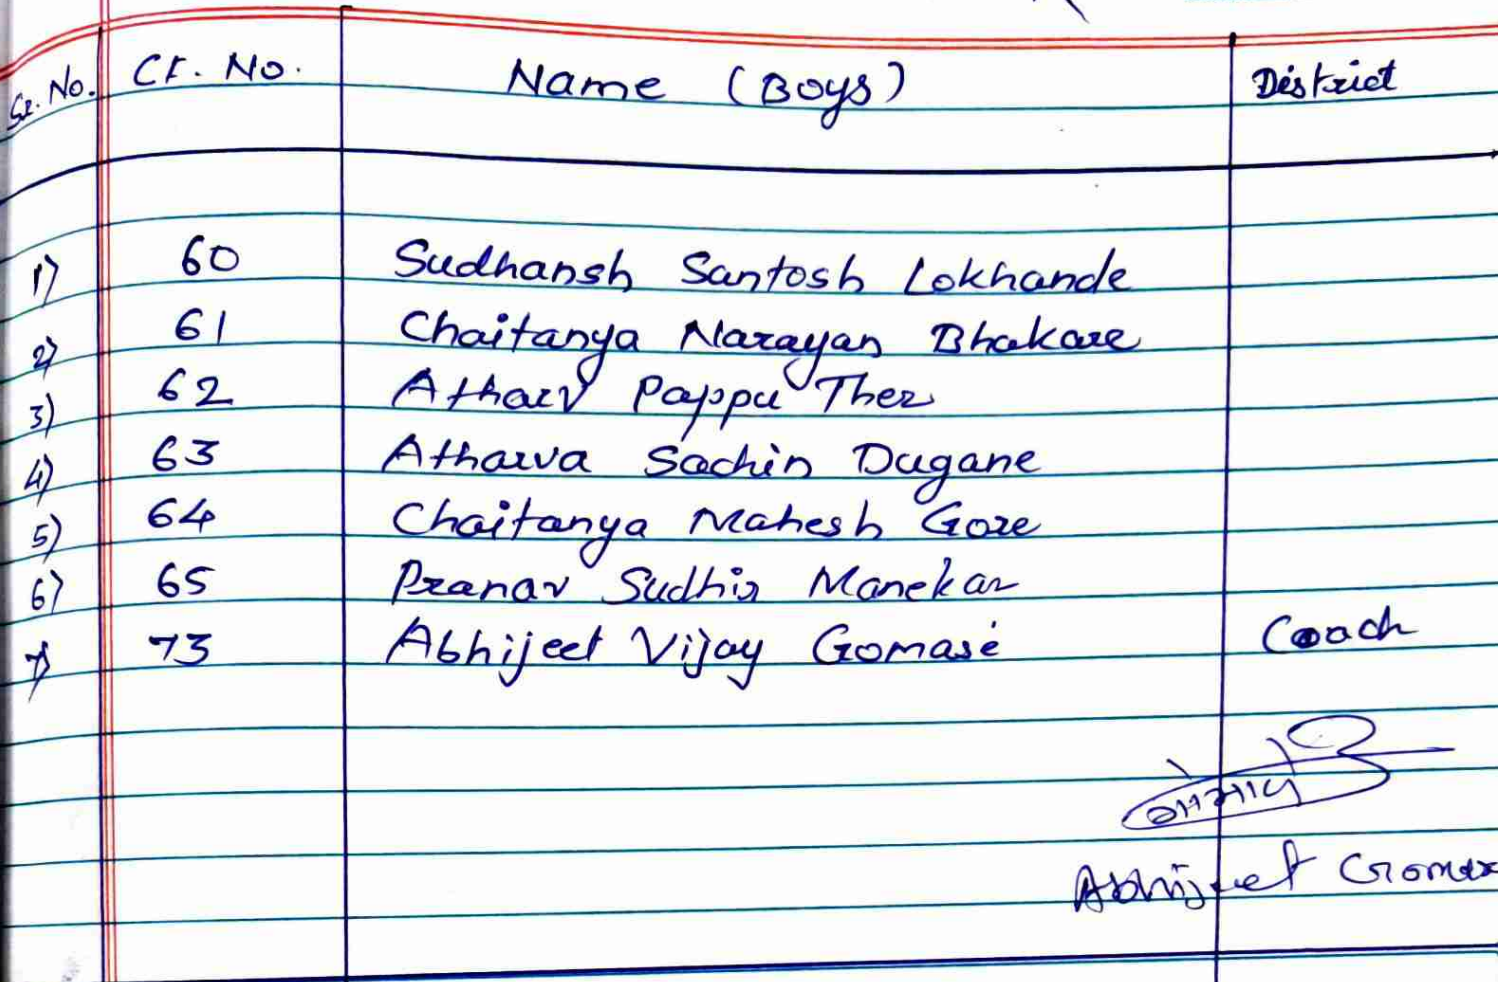 Sr. No. Cr. No. Name (Boys) District
1) 60 Sudhansh Santosh Lokhande
2) 61 Chaitanya Narayan Bhakare
3) 62 Atharv Pappu Ther
4) 63 Atharva Sachin Dugane
5) 64 Chaitanya Mahesh Gore
6) 65 Pranav Sudhir Manekar
7) 73 Abhijeet Vijay Gomase Coach
Abhijeet